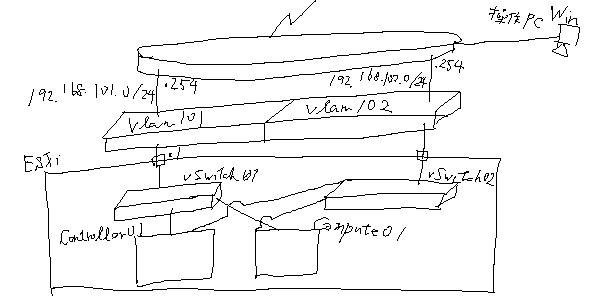 操作PC Win
192.168.101.0/24
.254
192.168.102.0/24
.254
vlan101
vlan102
ESXi
.1
vSwitch01
vSwitch02
Controller01
Compute01